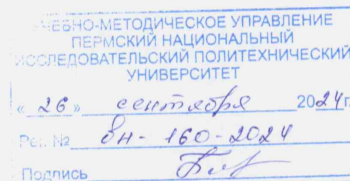 УЧЕБНО-МЕТОДИЧЕСКОЕ УПРАВЛЕНИЕ
ПЕРМСКИЙ НАЦИОНАЛЬНЫЙ
ИССЛЕДОВАТЕЛЬСКИЙ ПОЛИТЕХНИЧЕСКИЙ
УНИВЕРСИТЕТ
« 26 » сентября 2024г.
Рег. № вн - 160 - 2024
Подпись